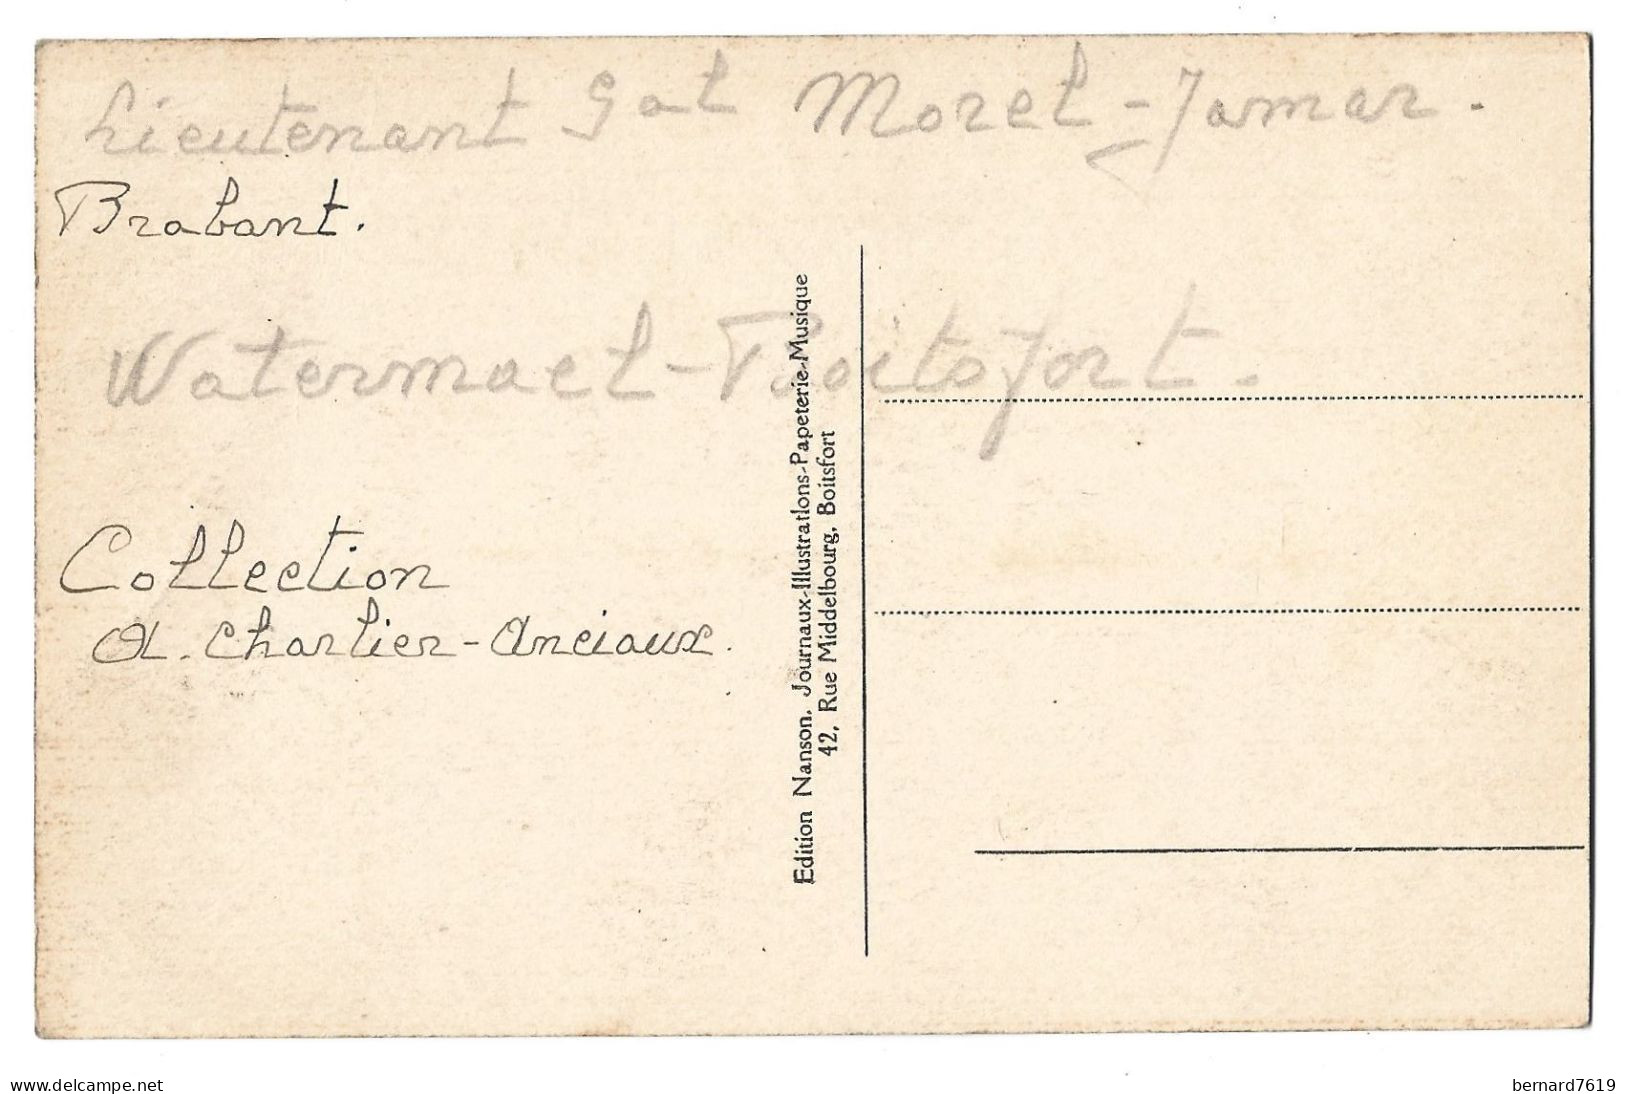 Lieutenant Gal Morel-Jamar.
Brabant.
Watermael-Boitsfort.
Collection
A. Charlier-Anciaux.
Edition Nanson, Journaux-Illustrations-Papeterie-Musique
42, Rue Middelbourg, Boitsfort
www.delcampe.net
bernard7619